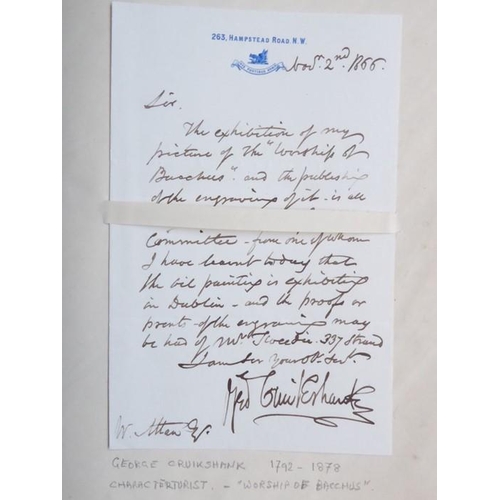 263, HAMPSTEAD ROAD. N.W.
Novr. 2nd. 1866.
Sir.
The exhibition of my
picture of the "Worship of
Bacchus" - and the publishing
of the engraving of it - is all
Committee - from one of whom
I have learnt today that
the oil painting is exhibiting
in Dublin - and the proofs or
prints of the engraving may
be had of Mr. Tweedie. 337 Strand
I am Sir Your Obt. Servt.
Geo Cruikshank
W. Allan Esq.
GEORGE CRUIKSHANK 1792 - 1878
CHARACTERTURIST. - "WORSHIP DE BACCHUS".